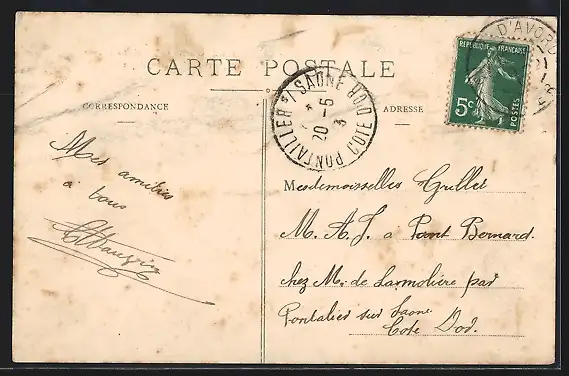 CARTE POSTALE
CORRESPONDANCE
ADRESSE
Mes amitiés
à tous
PONTAILLER S/ SAONE COTE D'OR
20 -6
REPUBLIQUE FRANÇAISE
5c POSTES
D'AVORD
Mesdemoiselles Grillet
M. A. J. a Pont Bernard.
chez Mr de Larmolière par
Pontalier sur Saone
Cote Dor.